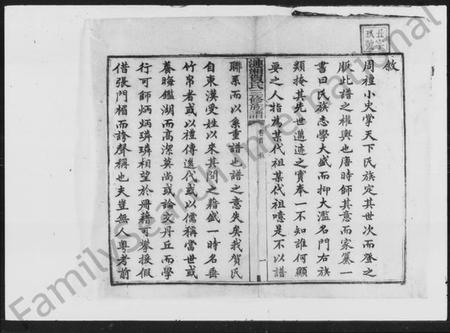 敘
周禮小史掌天下氏族定其世次而登之
版此譜之權輿也唐時師其意而家纂一
書曰氏族志學大盛而抑大濫名門右族
類掩其先世遺迹之實奉一不知誰何顯
要之人指為某代祖某代祖噫是不以譜
聯系而以系重譜也譜之意失矣我賀氏
自東漢受姓以來其間之籍盛一時名垂
竹帛者或以禮傳逸代或以儒稱當世或
養晦鑑湖而高潔英尚或論文丹丘而學
行可師炳炳璘璘相望於冊籍可攀援假
借張門楣而誇聲稱也夫豈無人粵考前
氏三修族譜
FamilySearch International